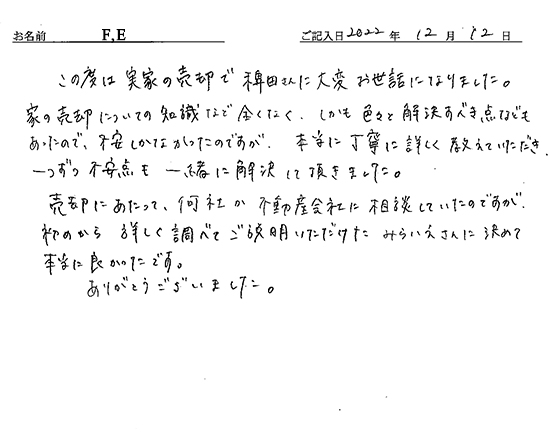 お名前 F,E ご記入日 2022 年 12 月 12 日
この度は実家の売却で稗田さんに大変お世話になりました。
家の売却についての知識など全くなく、しかも色々と解決すべき点なども
あったので、不安しかなかったのですが、本当に丁寧に詳しく教えていただき、
一つずつ不安点も一緒に解決して頂きました。
売却にあたって、何社か不動産会社に相談していたのですが、
初めから詳しく調べてご説明いただけたみらいえさんに決めて
本当に良かったです。
ありがとうございました。